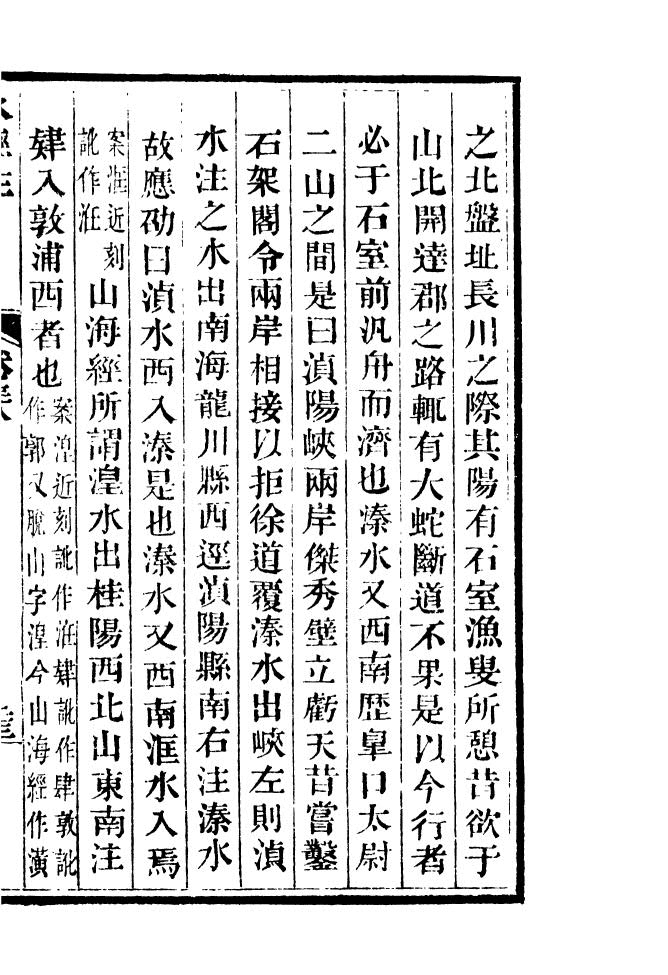 之北盤址長川之際其陽有石室漁叟所憩昔欲于
山北開達郡之路輒有大蛇斷道不果是以今行者
必于石室前汎舟而濟也溱水又西南歷皐口太尉
二山之間是曰湞陽峽兩岸傑秀壁立虧天昔嘗鑿
石架閣令兩岸相接以拒徐道覆溱水出峽左則湞
水注之水出南海龍川縣西逕湞陽縣南右注溱水
故應劭曰湞水西入溱是也溱水又西南洭水入焉
案洭近刻訛作洭 山海經所謂湟水出桂陽西北山東南注
肄入敦浦西者也 案湟近刻訛作洭肄訛作肆敦訛作郭又脫山字湟今山海經作潢
水經注